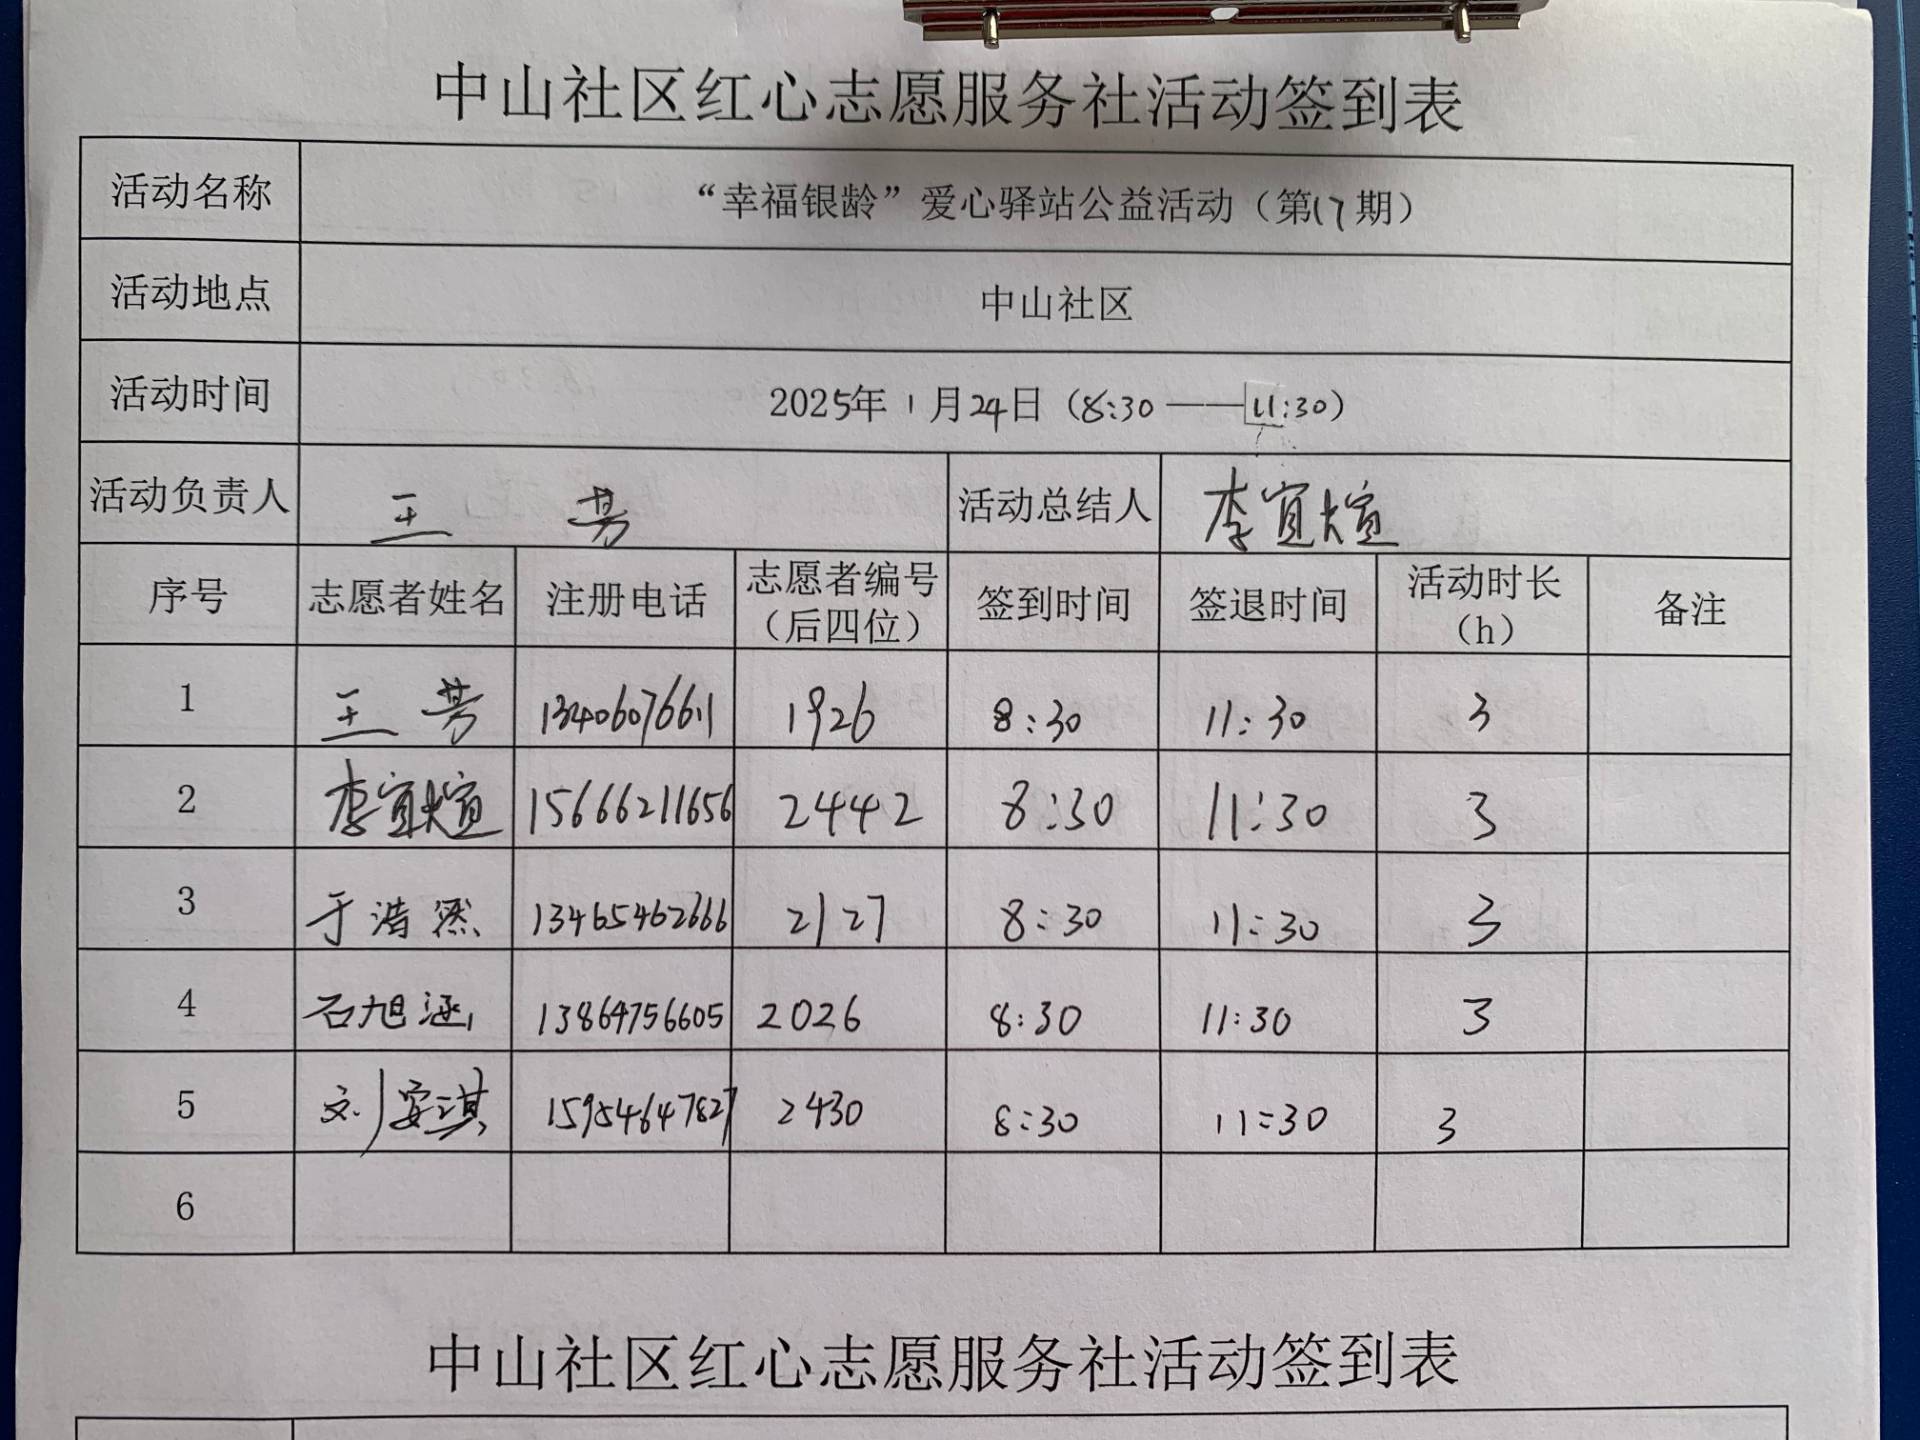 中山社区红心志愿服务社活动签到表
活动名称 “幸福银龄”爱心驿站公益活动（第17期）
活动地点 中山社区
活动时间 2025年1月24日（8:30——11:30）
活动负责人 王芳 活动总结人 李宜煊
序号 志愿者姓名 注册电话 志愿者编号（后四位） 签到时间 签退时间 活动时长（h） 备注
1 王芳 13406076611 1926 8:30 11:30 3
2 李宜煊 15666211656 2442 8:30 11:30 3
3 于浩然 13465462666 2127 8:30 11:30 3
4 石旭涵 13864756605 2026 8:30 11:30 3
5 刘安淇 15954647827 2430 8:30 11:30 3
6
中山社区红心志愿服务社活动签到表